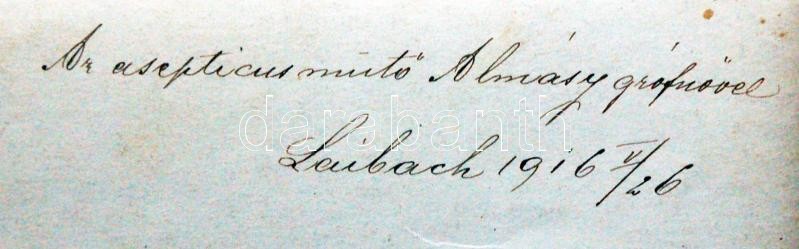 Az asepticus műtő Almásy grófnővel
darabanth
Laibach 1916 V/26